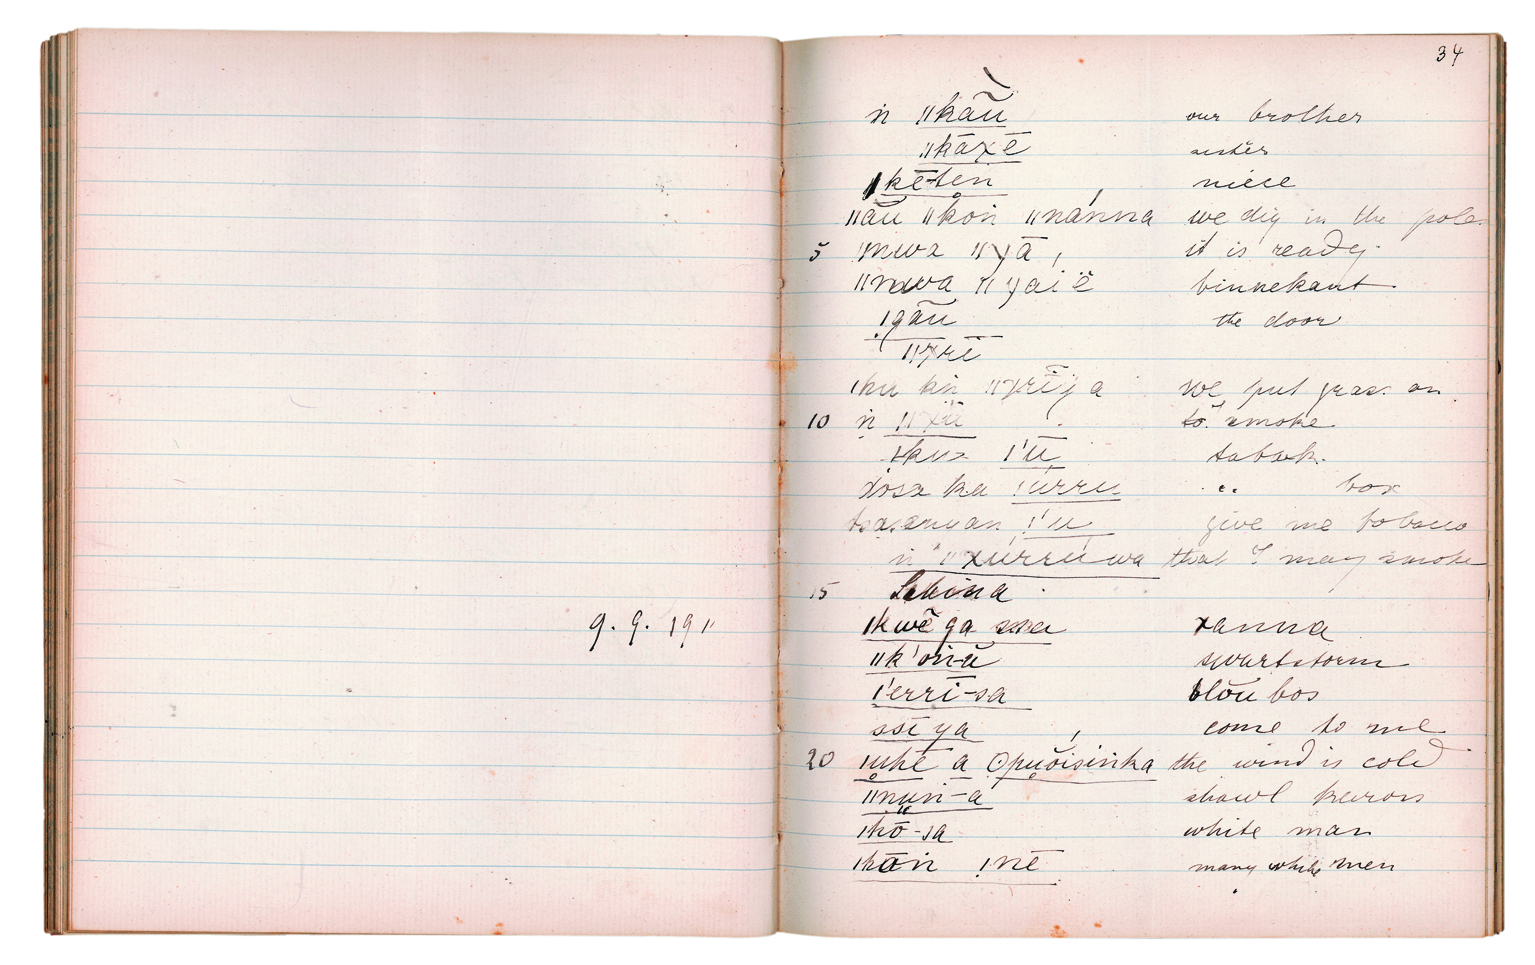 34
ṅ ǁkãũ our brother
ǁkāxē sister
ǀkē-teṅ niece
ǁãũ ǁkoṅ ǁnánna we dig in the pole
5 ǁyā, it is ready.
ǁnwa ǁyaië binnekant
ǃgãũ the door
ǁχrĩ
ǀku kiṅ ǁχrĩya we put gras on
10 ṅ ǁxũ to smoke
ǀ'ū tabak.
xosa ka ǃúrru „ box
ǃ'u give me tobacco
ṅ ǁxúrrúwa that I may smoke
15 Sabina
ǀkwẽga xanna
ǁk'oṅ-ã swartstorm
ǀ'erri-sa blōu bos
ssī ya come to me
20 ǀuhē a ʘpuoisiṅka the wind is cold
ǁnuṅ-a shawl karos
ǀhō-sa white man
ǀhōṅ ǃnē many white men
9.9.191